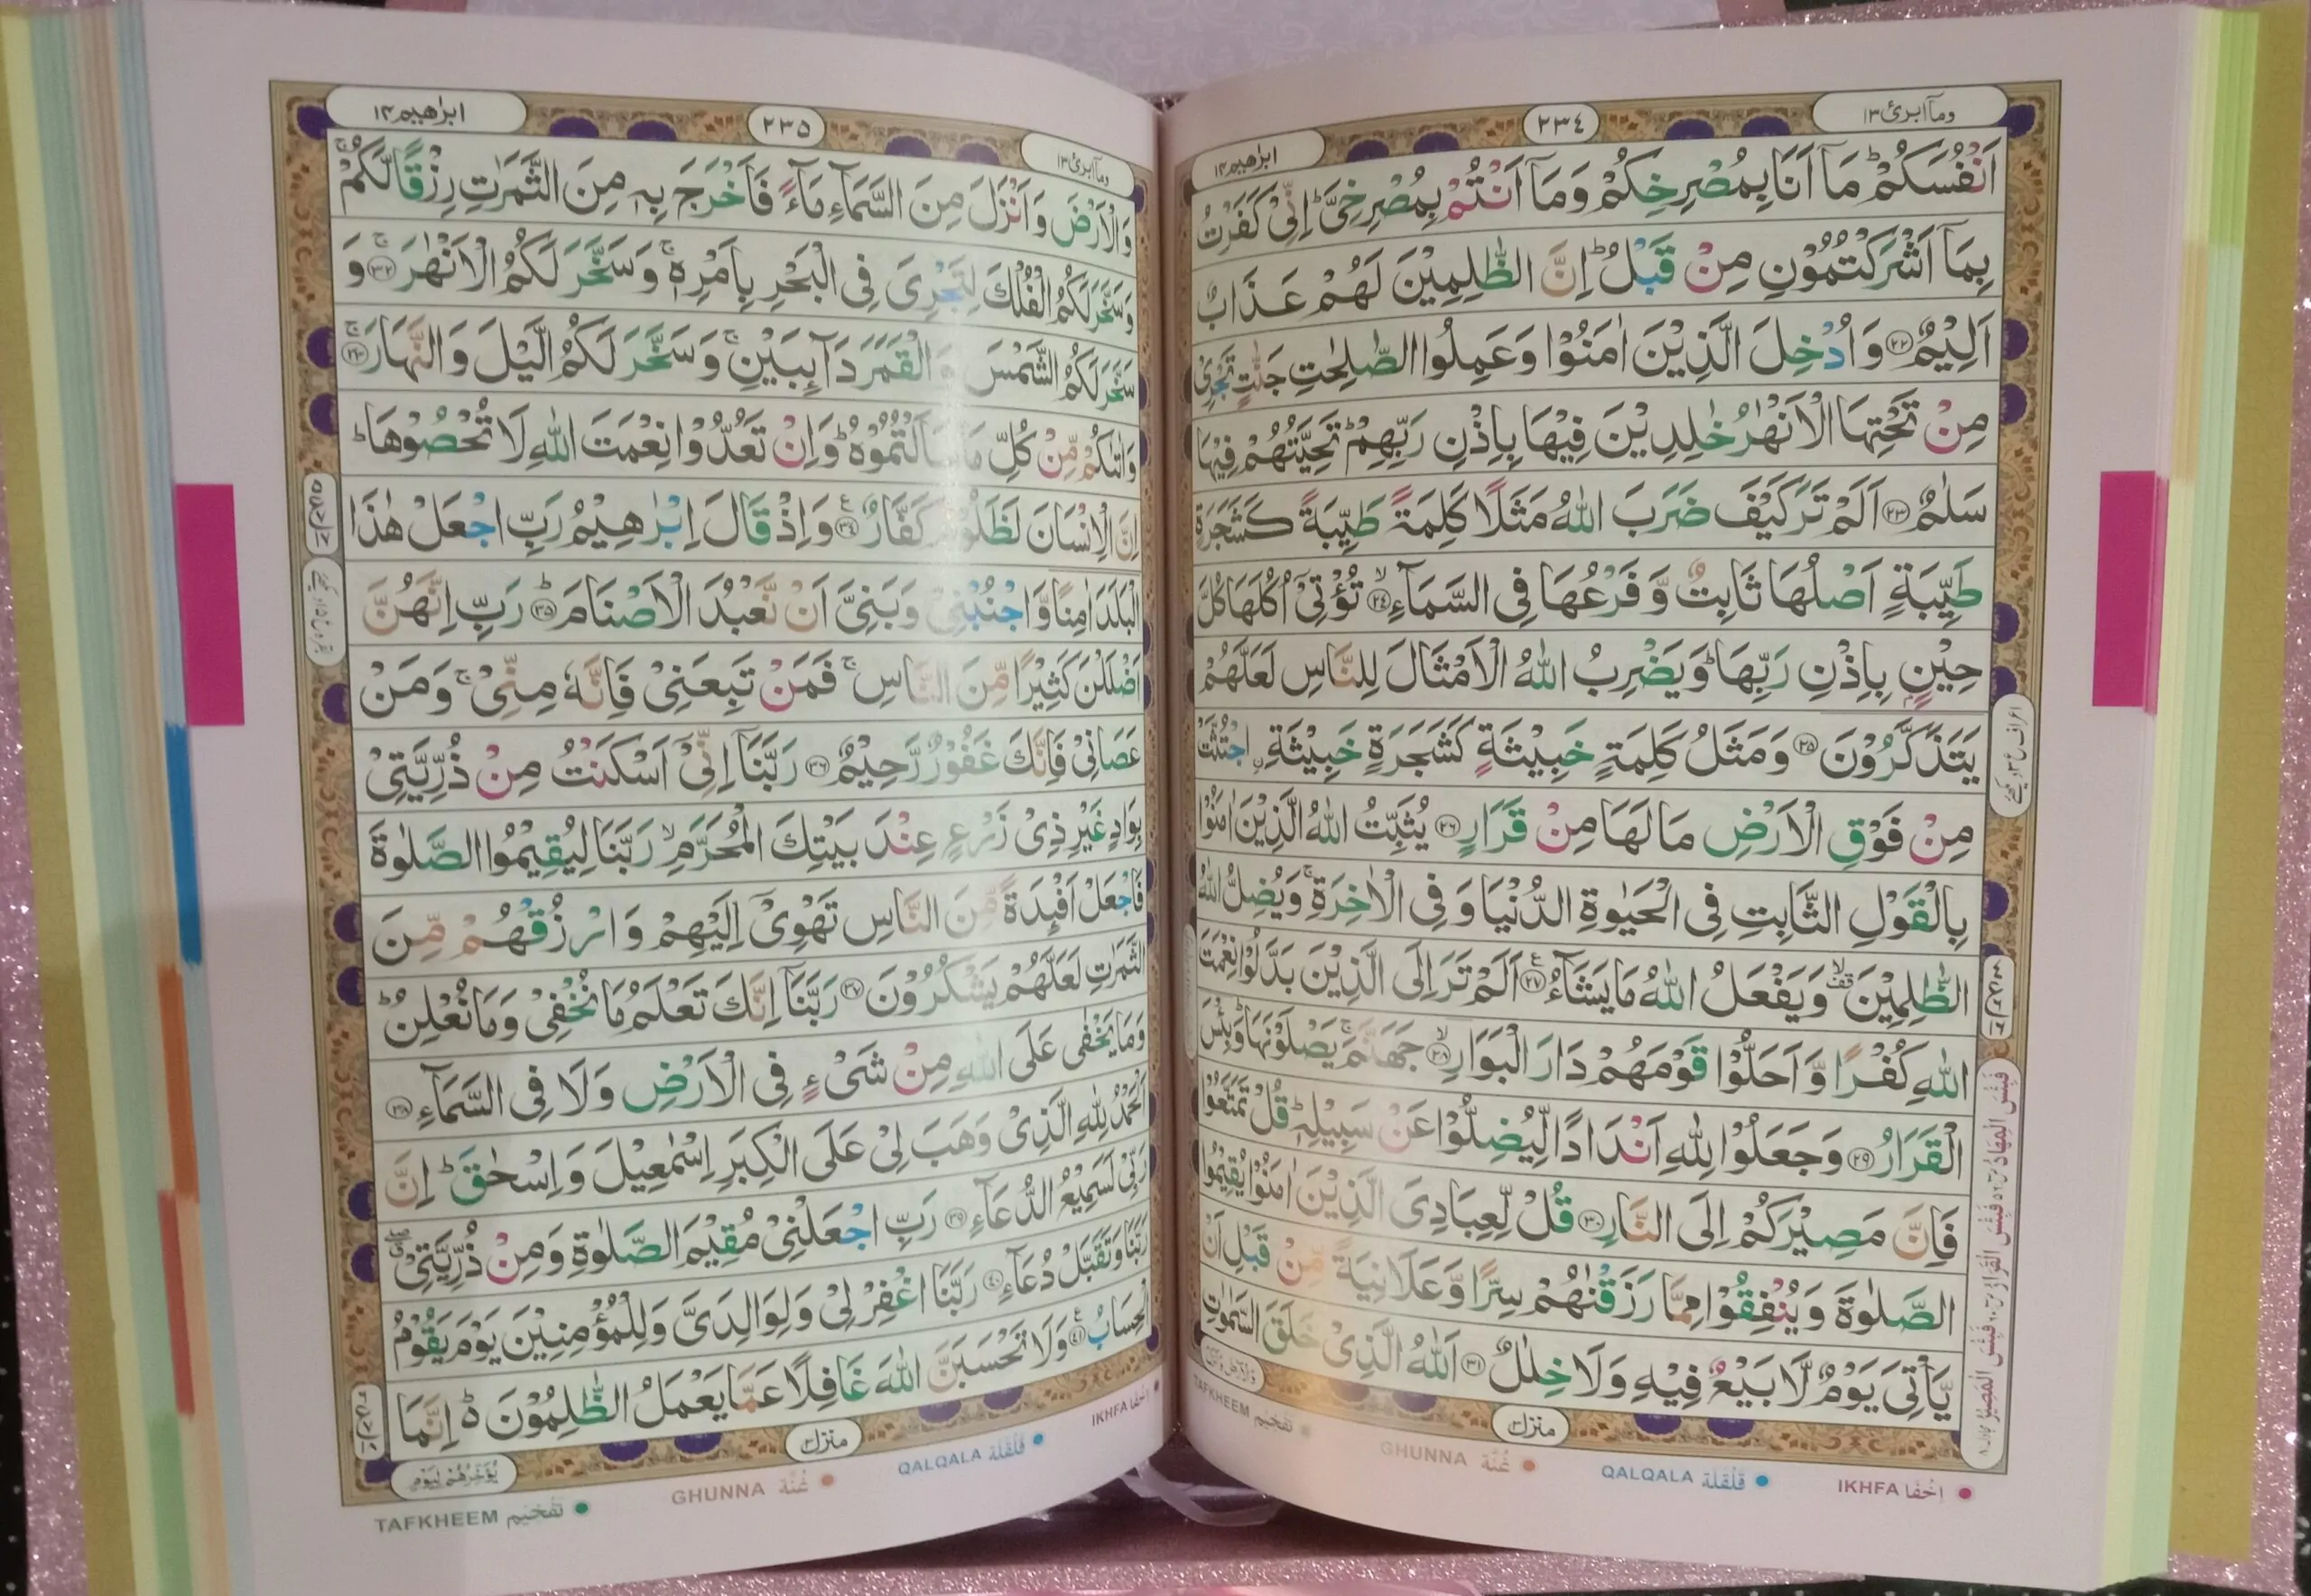 ومآ ابرئ ١٣
٢٣٤
ابرٰهيم ١٤
اَنْفُسَكُمْ ؕ مَاۤ اَنَا بِمُصْرِخِكُمْ وَمَاۤ اَنْتُمْ بِمُصْرِخِىَّ ؕ اِنِّىْ كَفَرْتُ
بِمَاۤ اَشْرَكْتُمُوْنِ مِنْ قَبْلُ ؕ اِنَّ الظّٰلِمِيْنَ لَهُمْ عَذَابٌ
اَلِيْمٌ ﴿٢٢﴾ وَاُدْخِلَ الَّذِيْنَ اٰمَنُوْا وَعَمِلُوا الصّٰلِحٰتِ جَنّٰتٍ تَجْرِىْ
مِنْ تَحْتِهَا الْاَنْهٰرُ خٰلِدِيْنَ فِيْهَا بِاِذْنِ رَبِّهِمْ ؕ تَحِيَّتُهُمْ فِيْهَا
سَلٰمٌ ﴿٢٣﴾ اَلَمْ تَرَ كَيْفَ ضَرَبَ اللّٰهُ مَثَلًا كَلِمَةً طَيِّبَةً كَشَجَرَةٍ
طَيِّبَةٍ اَصْلُهَا ثَابِتٌ وَّفَرْعُهَا فِى السَّمَآءِ ۙ ﴿٢٤﴾ تُؤْتِىْۤ اُكُلَهَا كُلَّ
حِيْنٍۭ بِاِذْنِ رَبِّهَا ؕ وَيَضْرِبُ اللّٰهُ الْاَمْثَالَ لِلنَّاسِ لَعَلَّهُمْ
يَتَذَكَّرُوْنَ ﴿٢٥﴾ وَمَثَلُ كَلِمَةٍ خَبِيْثَةٍ كَشَجَرَةٍ خَبِيْثَةِ ۨ اجْتُثَّتْ
مِنْ فَوْقِ الْاَرْضِ مَا لَهَا مِنْ قَرَارٍ ﴿٢٦﴾ يُثَبِّتُ اللّٰهُ الَّذِيْنَ اٰمَنُوْا
بِالْقَوْلِ الثَّابِتِ فِى الْحَيٰوةِ الدُّنْيَا وَفِى الْاٰخِرَةِ ۚ وَيُضِلُّ اللّٰهُ
الظّٰلِمِيْنَ ۙ قف وَيَفْعَلُ اللّٰهُ مَا يَشَآءُ ﴿٢٧﴾ ع اَلَمْ تَرَ اِلَى الَّذِيْنَ بَدَّلُوْا نِعْمَتَ
اللّٰهِ كُفْرًا وَّاَحَلُّوْا قَوْمَهُمْ دَارَ الْبَوَارِ ۙ ﴿٢٨﴾ جَهَنَّمَ ۚ يَصْلَوْنَهَا ؕ وَبِئْسَ
الْقَرَارُ ﴿٢٩﴾ وَجَعَلُوْا لِلّٰهِ اَنْدَادًا لِّيُضِلُّوْا عَنْ سَبِيْلِهٖ ؕ قُلْ تَمَتَّعُوْا
فَاِنَّ مَصِيْرَكُمْ اِلَى النَّارِ ﴿٣٠﴾ قُلْ لِّعِبَادِىَ الَّذِيْنَ اٰمَنُوْا يُقِيْمُوا
الصَّلٰوةَ وَيُنْفِقُوْا مِمَّا رَزَقْنٰهُمْ سِرًّا وَّعَلَانِيَةً مِّنْ قَبْلِ اَنْ
يَّاْتِىَ يَوْمٌ لَّا بَيْعٌ فِيْهِ وَلَا خِلٰلٌ ﴿٣١﴾ اَللّٰهُ الَّذِىْ خَلَقَ السَّمٰوٰتِ
منزل ٣
IKHFA اِخْفَا
QALQALA قَلْقَلَة
GHUNNA غُنَّة
TAFKHEEM تَفْخِيْم
ومآ ابرئ ١٣
٢٣٥
ابرٰهيم ١٤
وَالْاَرْضَ وَاَنْزَلَ مِنَ السَّمَآءِ مَآءً فَاَخْرَجَ بِهٖ مِنَ الثَّمَرٰتِ رِزْقًا لَّكُمْ ۚ
وَسَخَّرَ لَكُمُ الْفُلْكَ لِتَجْرِىَ فِى الْبَحْرِ بِاَمْرِهٖ ۚ وَسَخَّرَ لَكُمُ الْاَنْهٰرَ ۚ ﴿٣٢﴾ وَ
سَخَّرَ لَكُمُ الشَّمْسَ وَالْقَمَرَ دَآئِبَيْنِ ۚ وَسَخَّرَ لَكُمُ الَّيْلَ وَالنَّهَارَ ۚ ﴿٣٣﴾
وَاٰتٰىكُمْ مِّنْ كُلِّ مَا سَاَلْتُمُوْهُ ؕ وَاِنْ تَعُدُّوْا نِعْمَتَ اللّٰهِ لَا تُحْصُوْهَا ؕ
اِنَّ الْاِنْسَانَ لَظَلُوْمٌ كَفَّارٌ ﴿٣٤﴾ ع وَاِذْ قَالَ اِبْرٰهِيْمُ رَبِّ اجْعَلْ هٰذَا
الْبَلَدَ اٰمِنًا وَّاجْنُبْنِىْ وَبَنِىَّ اَنْ نَّعْبُدَ الْاَصْنَامَ ؕ ﴿٣٥﴾ رَبِّ اِنَّهُنَّ
اَضْلَلْنَ كَثِيْرًا مِّنَ النَّاسِ ۚ فَمَنْ تَبِعَنِىْ فَاِنَّهٗ مِنِّىْ ۚ وَمَنْ
عَصَانِىْ فَاِنَّكَ غَفُوْرٌ رَّحِيْمٌ ﴿٣٦﴾ رَبَّنَاۤ اِنِّىْۤ اَسْكَنْتُ مِنْ ذُرِّيَّتِىْ
بِوَادٍ غَيْرِ ذِىْ زَرْعٍ عِنْدَ بَيْتِكَ الْمُحَرَّمِ ۙ رَبَّنَا لِيُقِيْمُوا الصَّلٰوةَ
فَاجْعَلْ اَفْئِدَةً مِّنَ النَّاسِ تَهْوِىْۤ اِلَيْهِمْ وَارْزُقْهُمْ مِّنَ
الثَّمَرٰتِ لَعَلَّهُمْ يَشْكُرُوْنَ ﴿٣٧﴾ رَبَّنَاۤ اِنَّكَ تَعْلَمُ مَا نُخْفِىْ وَمَا نُعْلِنُ ؕ
وَمَا يَخْفٰى عَلَى اللّٰهِ مِنْ شَىْءٍ فِى الْاَرْضِ وَلَا فِى السَّمَآءِ ﴿٣٨﴾
اَلْحَمْدُ لِلّٰهِ الَّذِىْ وَهَبَ لِىْ عَلَى الْكِبَرِ اِسْمٰعِيْلَ وَاِسْحٰقَ ؕ اِنَّ
رَبِّىْ لَسَمِيْعُ الدُّعَآءِ ﴿٣٩﴾ رَبِّ اجْعَلْنِىْ مُقِيْمَ الصَّلٰوةِ وَمِنْ ذُرِّيَّتِىْ
رَبَّنَا وَتَقَبَّلْ دُعَآءِ ﴿٤٠﴾ رَبَّنَا اغْفِرْ لِىْ وَلِوَالِدَىَّ وَلِلْمُؤْمِنِيْنَ يَوْمَ يَقُوْمُ
الْحِسَابُ ﴿٤١﴾ ع وَلَا تَحْسَبَنَّ اللّٰهَ غَافِلًا عَمَّا يَعْمَلُ الظّٰلِمُوْنَ ؕ اِنَّمَا
منزل ٣
يُؤَخِّرُهُمْ لِيَوْمٍ
IKHFA اِخْفَا
QALQALA قَلْقَلَة
GHUNNA غُنَّة
TAFKHEEM تَفْخِيْم